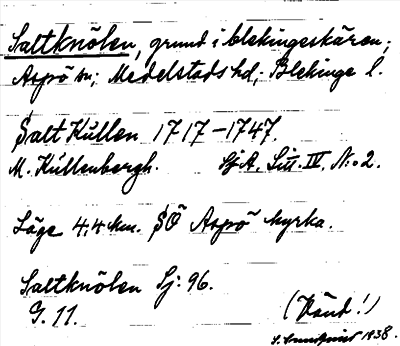 Saltknölen, grund i blekingeskären;
Aspö sn; Medelstads hd; Blekinge l.
Salt Kullen 1717-1747.
M. Kullenbergh. Sj.A. Litt. IV, N:o 2.
Läge 4,4 km. SÖ Aspö kyrka.
Saltknölen Sj: 96.
G. 11.
(Vänd!)
1938.